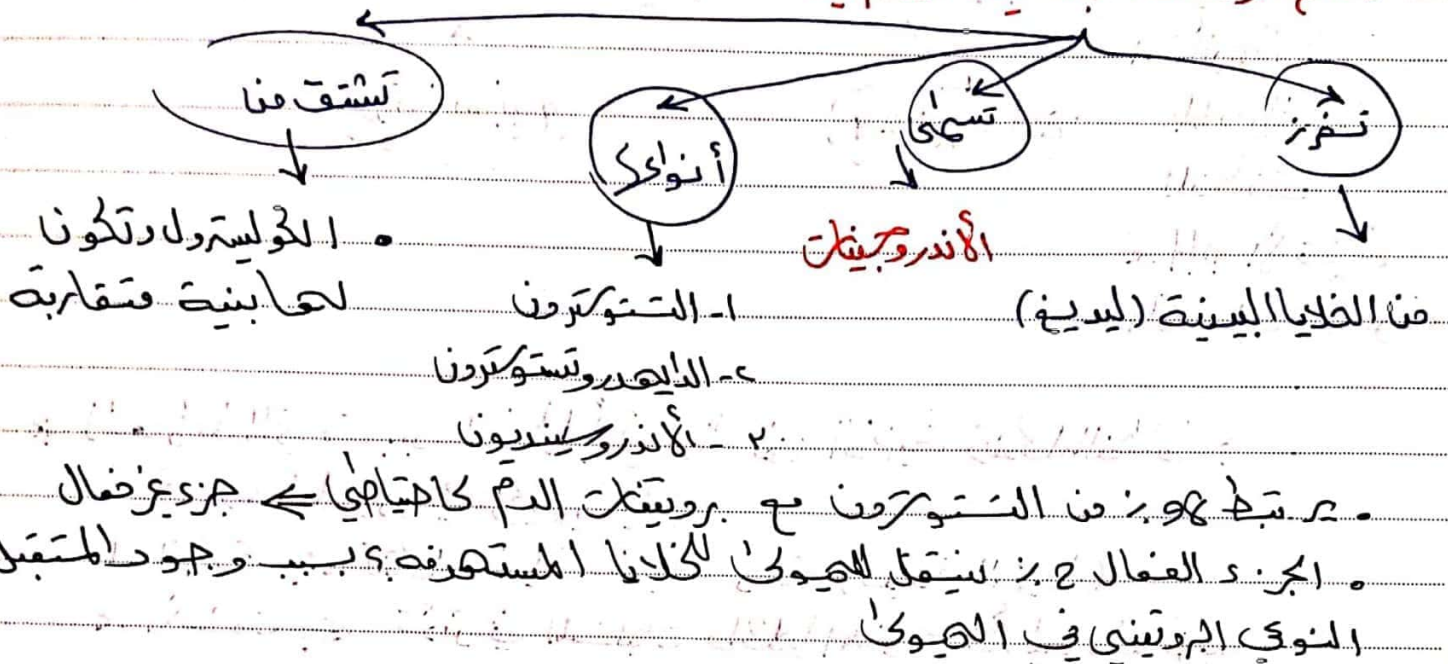 تفرز
تسمى
أنواعها
تشتق من
من الخلايا البينية (ليديغ)
الأندروجينات
١- التستوسترون
٢- الدايهدروتستوسترون
٣- الأندروستينديون
• الكوليسترول وتكون
لها بنية متقاربة
• يرتبط ٩٨٪ من التستوسترون مع بروتينات الدم كاحتياطي ⇐ جزء غير فعال
• الجزء الفعال ٢٪ ينتقل لهيولى الخلايا المستهدفة؟ بسبب وجود المستقبل
النوعي البروتيني في الهيولى